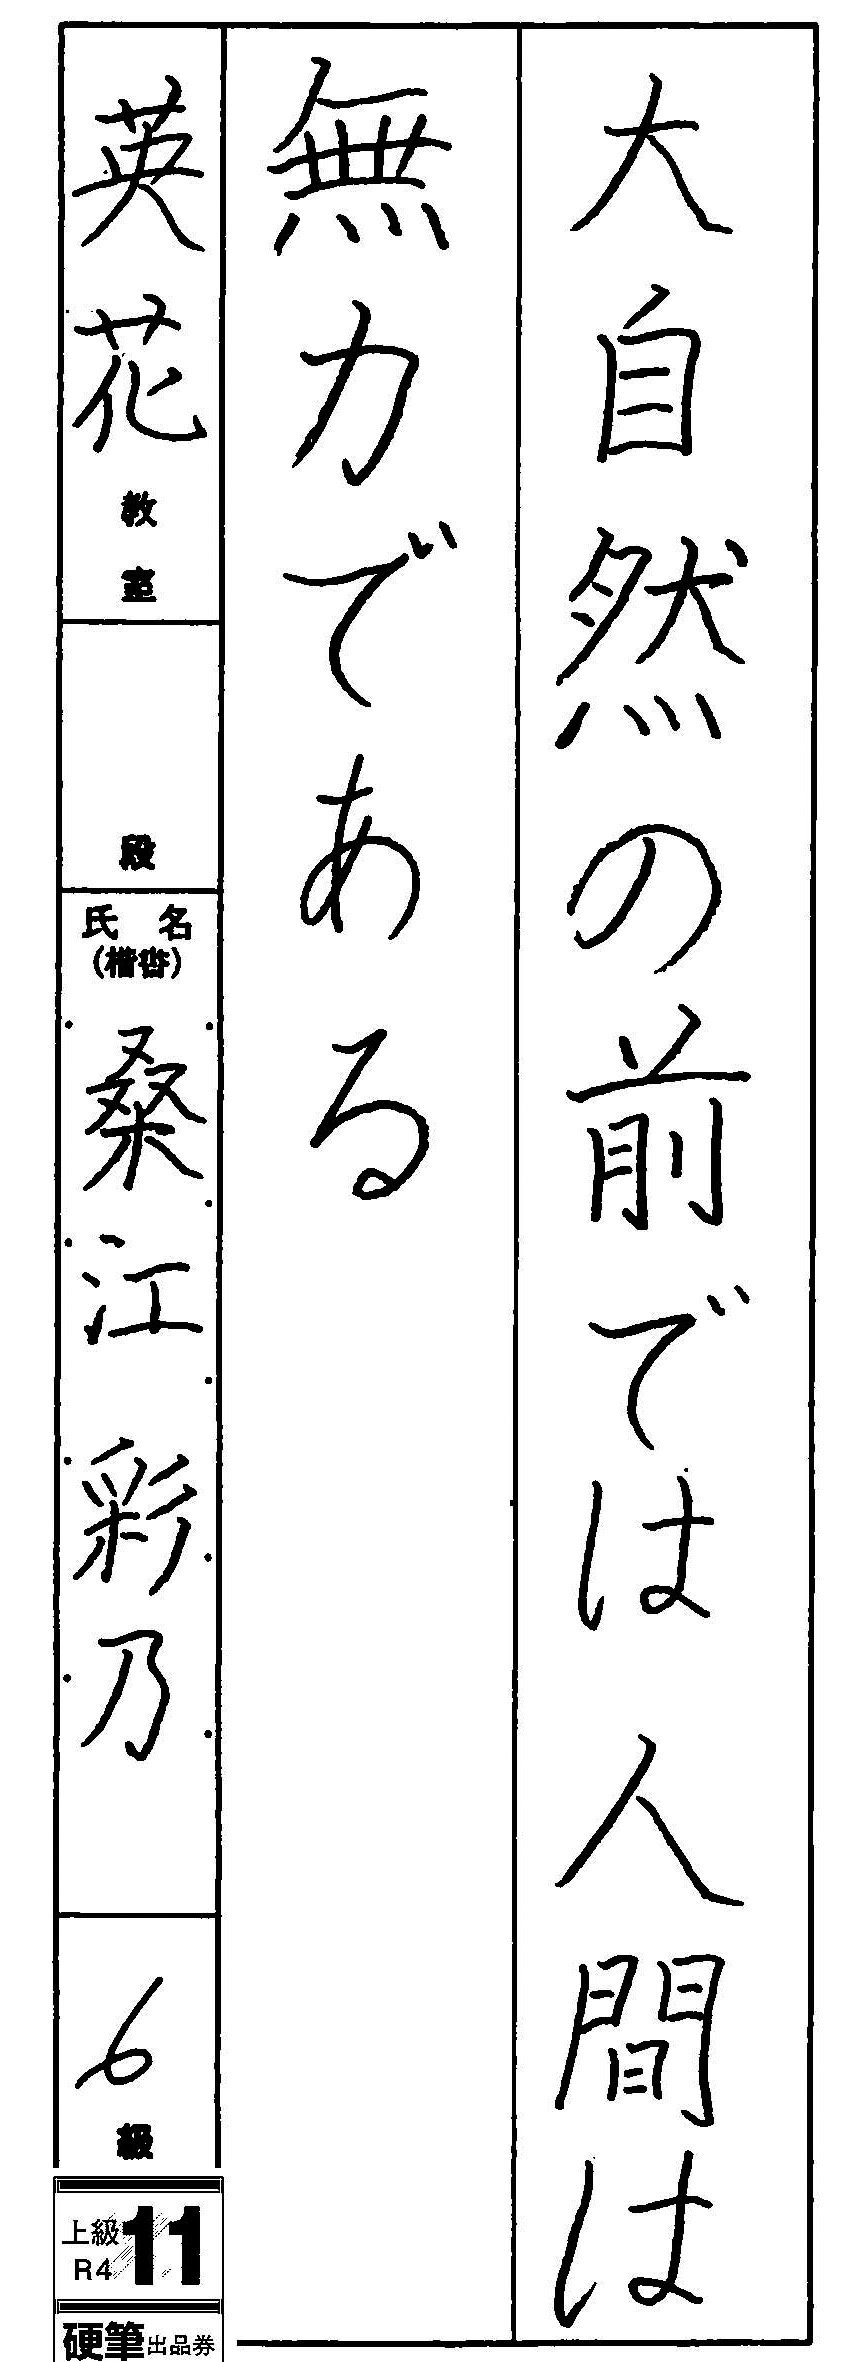 大自然の前では人間は
無力である
英花教室
段
氏名
(楷書)
桑江彩乃
6級
上級
R4
11
硬筆出品券